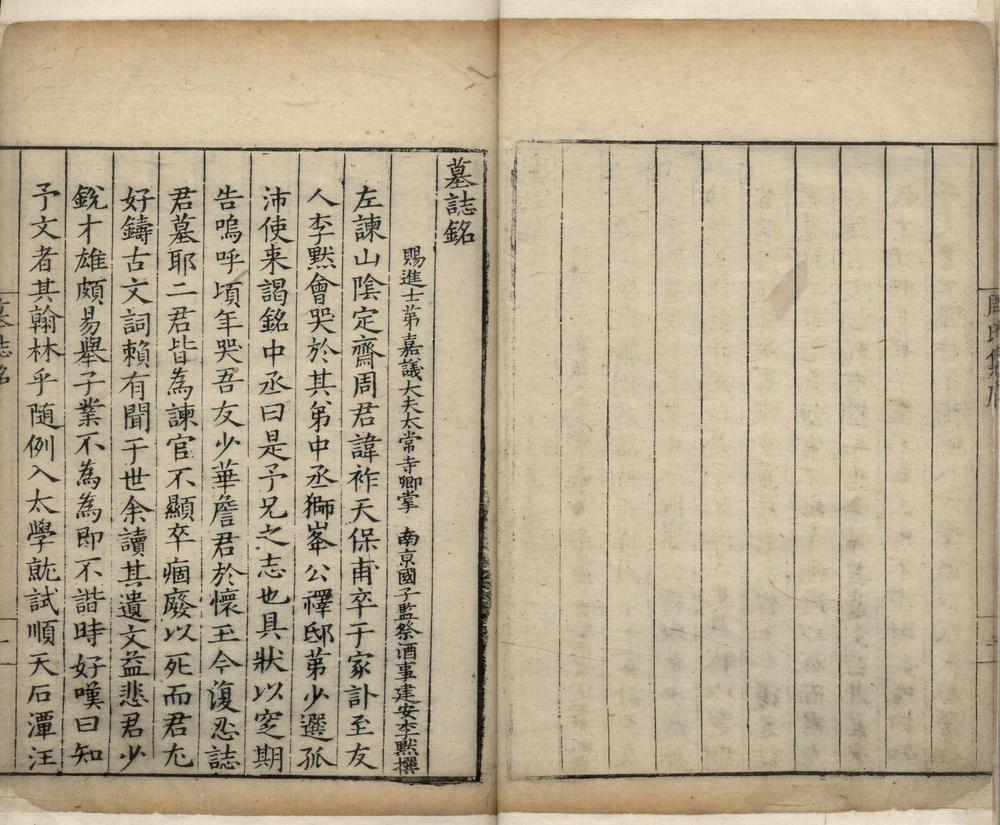 墓誌銘
賜進士第嘉議大夫太常寺卿掌　南京國子監祭酒事建安李默撰
左諫山陰定齋周君諱祚天保甫卒于家訃至友
人李默會哭於其弟中丞獅峯公禪邸第少選孤
沛使来謁銘中丞曰是予兄之志也具狀以窆期
告嗚呼頃年哭吾友少華詹君於懷玉今復忍誌
君墓耶二君皆為諫官不顯卒痼廢以死而君尤
好鑄古文詞頼有聞于世余讀其遺文益悲君少
銳才雄頗易舉子業不為為即不諧時好嘆曰知
予文者其翰林乎隨例入太學就試順天石潭汪
墓志名